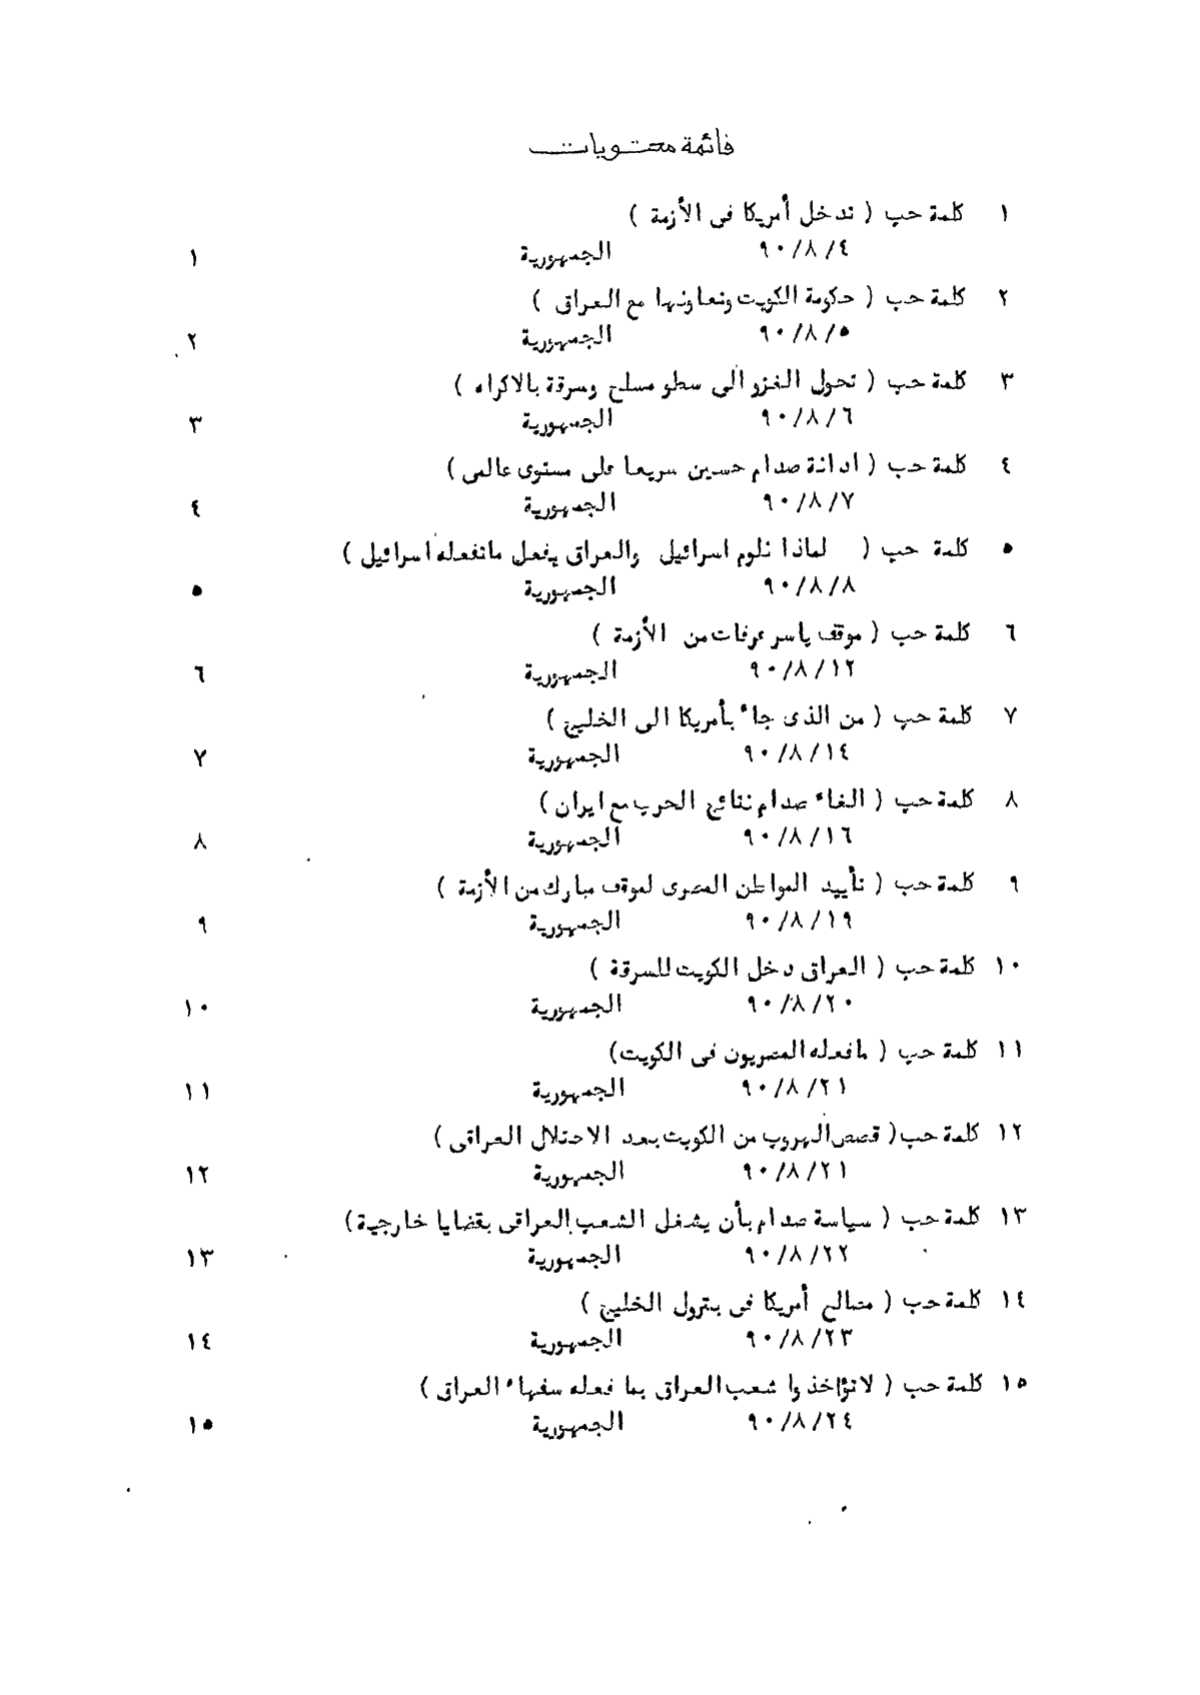 قائمة محتويات
١ كلمة حب ( تدخل أمريكا فى الأزمة )
٩٠/٨/٤ الجمهورية ١
٢ كلمة حب ( حكومة الكويت وتعاونها مع العراق )
٩٠/٨/٥ الجمهورية ٢
٣ كلمة حب ( تحول الغزو الى سطو مسلح وسرقة بالاكراه )
٩٠/٨/٦ الجمهورية ٣
٤ كلمة حب ( ادانة صدام حسين سريعا على مستوى عالمى )
٩٠/٨/٧ الجمهورية ٤
٥ كلمة حب ( لماذا نلوم اسرائيل والعراق يفعل ماتفعله اسرائيل )
٩٠/٨/٨ الجمهورية ٥
٦ كلمة حب ( موقف ياسر عرفات من الأزمة )
٩٠/٨/١٢ الجمهورية ٦
٧ كلمة حب ( من الذى جاء بأمريكا الى الخليج )
٩٠/٨/١٤ الجمهورية ٧
٨ كلمة حب ( الغاء صدام نتائج الحرب مع ايران )
٩٠/٨/١٦ الجمهورية ٨
٩ كلمة حب ( تأييد المواطن المصرى لموقف مبارك من الأزمة )
٩٠/٨/١٩ الجمهورية ٩
١٠ كلمة حب ( العراق دخل الكويت للسرقة )
٩٠/٨/٢٠ الجمهورية ١٠
١١ كلمة حب ( مافعله المصريون فى الكويت)
٩٠/٨/٢١ الجمهورية ١١
١٢ كلمة حب ( قصص الهروب من الكويت بعد الاحتلال العراقى )
٩٠/٨/٢١ الجمهورية ١٢
١٣ كلمة حب ( سياسة صدام بأن يشغل الشعب العراقى بقضايا خارجية)
٩٠/٨/٢٢ الجمهورية ١٣
١٤ كلمة حب ( مصالح أمريكا فى بترول الخليج )
٩٠/٨/٢٣ الجمهورية ١٤
١٥ كلمة حب ( لاتؤاخذوا شعب العراق بما فعله سفهاء العراق )
٩٠/٨/٢٤ الجمهورية ١٥